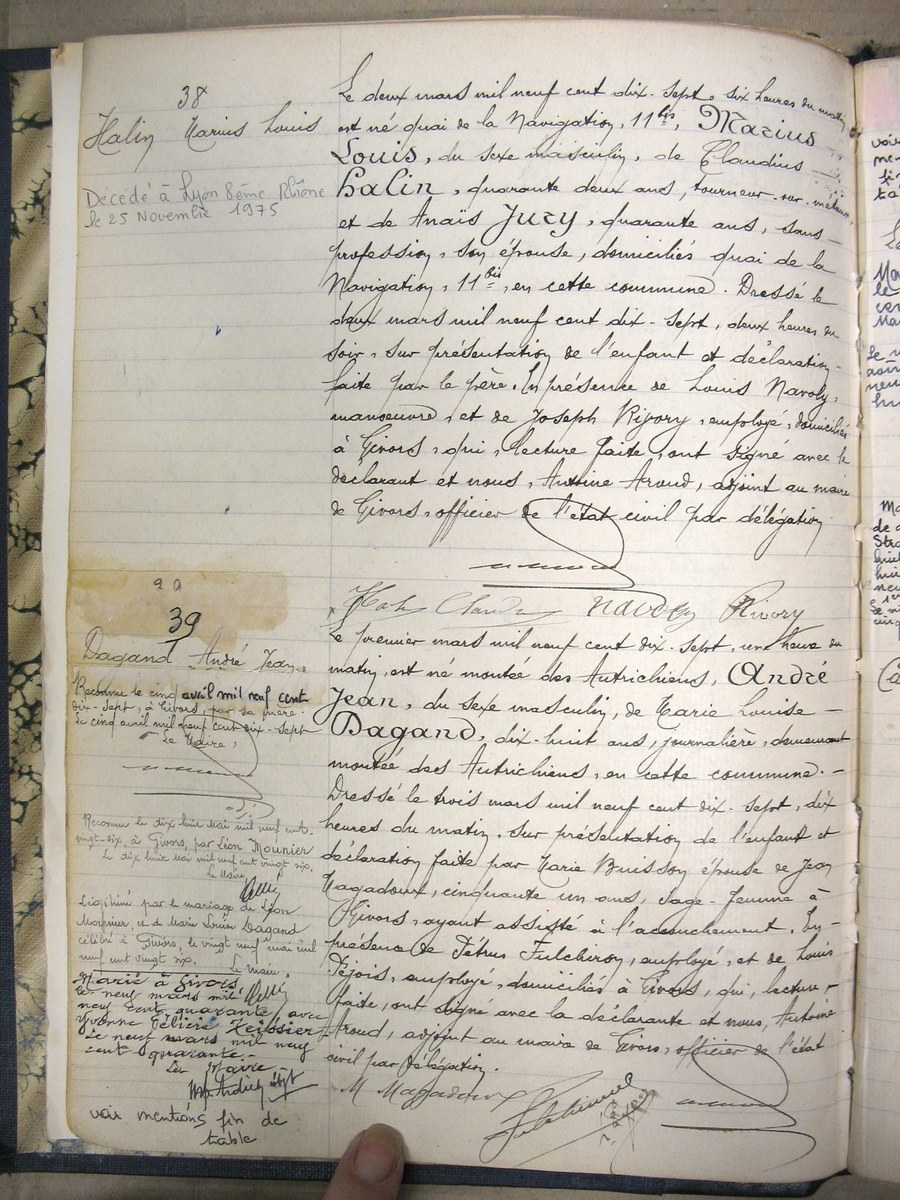 38
Halin Marius Louis
Décédé à Lyon 8ème Rhône
le 25 Novembre 1975
Le deux mars mil neuf cent dix-sept, six heures du matin
est né quai de la Navigation, 11 bis, Marius
Louis, du sexe masculin, de Claudius
Halin, quarante deux ans, tourneur-sur-métaux,
et de Anaïs Jury, quarante ans, sans
profession, son épouse, domiciliés quai de la
Navigation, 11 bis, en cette commune. Dressé le
deux mars mil neuf cent dix-sept, deux heures du
soir, sur présentation de l'enfant et déclaration
faite par le père. En présence de Louis Navoly,
manoeuvre, et de Joseph Rivory, employé, domiciliés
à Givors, qui, lecture faite, ont signé avec le
déclarant et nous, Antoine Aroud, adjoint au maire
de Givors, officier de l'état civil par délégation.
Navoly Rivory
39
Dagand André Jean
Reconnu le cinq avril mil neuf cent
dix-sept, à Givors, par sa mère.
Le cinq avril mil neuf cent dix-sept
Le Maire,
Reconnu le dix huit Mai mil neuf cent
vingt-six, à Givors, par Léon Mounier
Le dix huit Mai mil neuf cent vingt six.
Le Maire,
Légitimé par le mariage de Léon
Mounier, et de Marie Louise Dagand
célébré à Givors, le vingt neuf mai mil
neuf cent vingt six.
Le Maire,
Marié à Givors
le neuf mars mil
neuf cent quarante, avec
Yvonne Félicie Teissier
Le neuf mars mil neuf
cent quarante.-
Le Maire
voir mentions fin de
table
Le premier mars mil neuf cent dix-sept, une heure du
matin, est né montée des Autrichiens, André
Jean, du sexe masculin, de Marie Louise
Dagand, dix-huit ans, journalière, demeurant
montée des Autrichiens, en cette commune.
Dressé le trois mars mil neuf cent dix-sept, dix
heures du matin, sur présentation de l'enfant et
déclaration faite par Marie Buisson épouse de Jean
Magadoux, cinquante un ans, sage-femme à
Givors, ayant assisté à l'accouchement. En
présence de Pétrus Fulchiron, employé, et de Louis
Péjois, employé, domiciliés à Givors, qui, lecture
faite, ont signé avec la déclarante et nous, Antoine
Aroud, adjoint au maire de Givors, officier de l'état
civil par délégation.
M Magadoux